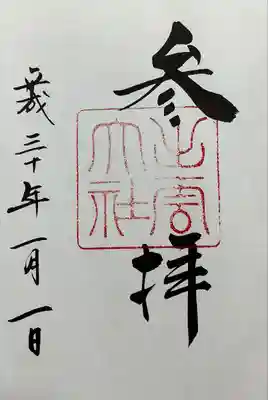 参拝
大社
平成三十年一月一日